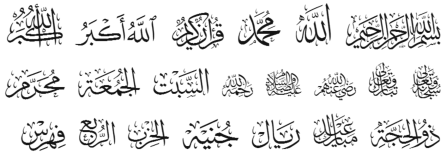 بسم الله الرحمن الرحيم الله محمد قرآن كريم الله أكبر الله أكبر
سبحانه وتعالى تبارك وتعالى رضي الله عنهم عليه الصلاة والسلام رحمه الله السبت الجمعة محرم
ذو الحجة عيد مبارك ريال جنيه الحزب الربع فهرس